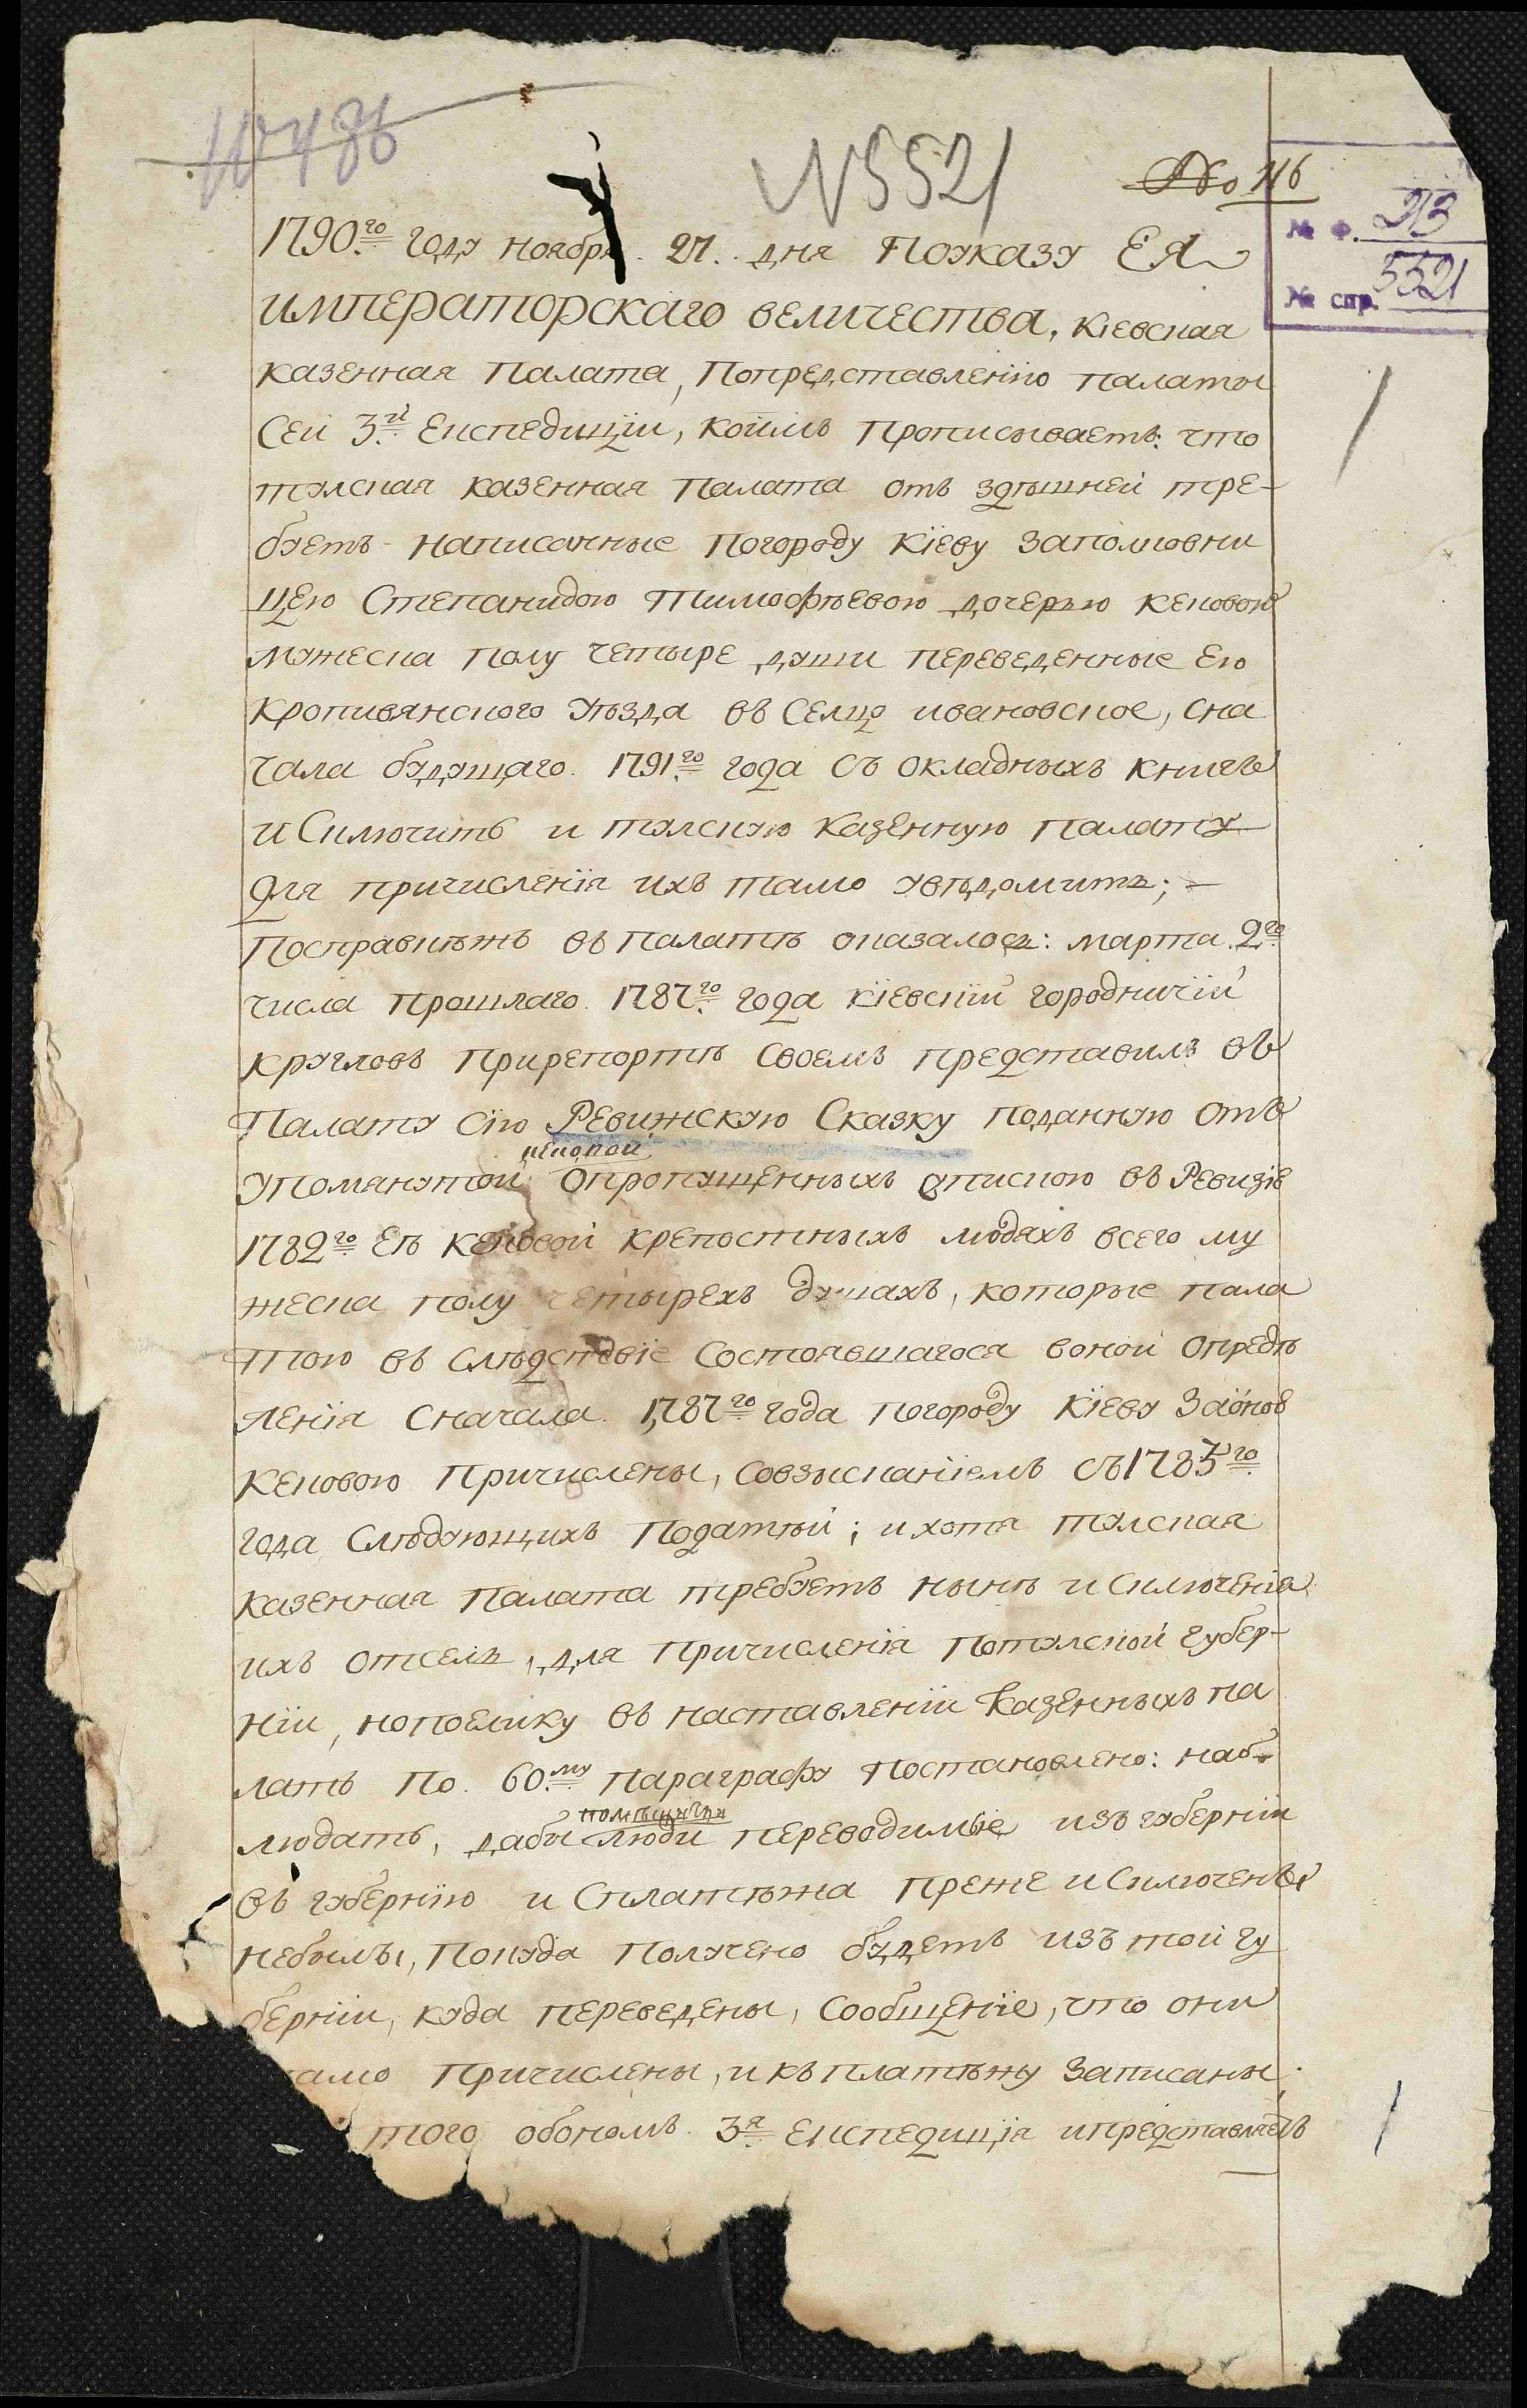 10486
N 5521
No 116
№ ф. 213
№ спр. 5521
1790.го году ноября. 27. дня Поуказу ЕЯ
императорскаго величества, Кіевская
казенная Палата, Попредставленїю палаты
Сей 3.й Експедицїи, коимъ Прописываетъ: что
тулская казенная Палата отъ здѣшней тре-
буетъ написанные Погороду Кїеву заполковни
цею Степанидою Тимофѣевою дочерью Кековою
мужеска полу четыре души переведенные Ею
Кропивянского Уѣзда въ Селцо ивановское, сна
чала будущаго 1791.го года съ окладныхъ книгъ
и Сключить и тулскую Казенную палату
для причисленїя ихъ тамо увѣдомить;
Посправкѣжъ въ палатѣ оказалось: марта 2го
числа Прошлаго 1787.го года кїевскїй городничїй
Кругловъ Прирепортѣ Своемъ представилъ въ
Палату сїю Ревижскую Сказку поданную отъ
кековой
упомянутой опропущенныхъ описною въ Ревизїе
1782го Еѣ Кековой крепостныхъ людяхъ всего му
жеска полу четырехъ душахъ, которые пала
тою въ слѣдствїе Состоявшагося воной опредѣ
ленїя Сначала 1787го года погороду Кїеву Заонов
Кековою Причислены, Совзысканїемъ съ 1783го
года Слѣдующихъ Податѣй; и хотя тулская
казенная Палата требуетъ нынѣ и Сключенїя
ихъ отсель, для Причисленїя Потулской губер-
нїи, нопоелику въ наставленїи Казенныхъ па
латъ по 60.му параграфу Постановлено: наб-
помѣщичьи
людать, дабы люди переводимые изъ губернїи
въ губернїю и Сплатѣжа Преже и Сключены
небыли, Покуда Получено будетъ изъ той гу
бернїи, куда переведены, Сообщенїе, что они
амо Причислены, и къ платѣжу Записаны;
того обономъ 3.я Експедицїя ипредставляетъ